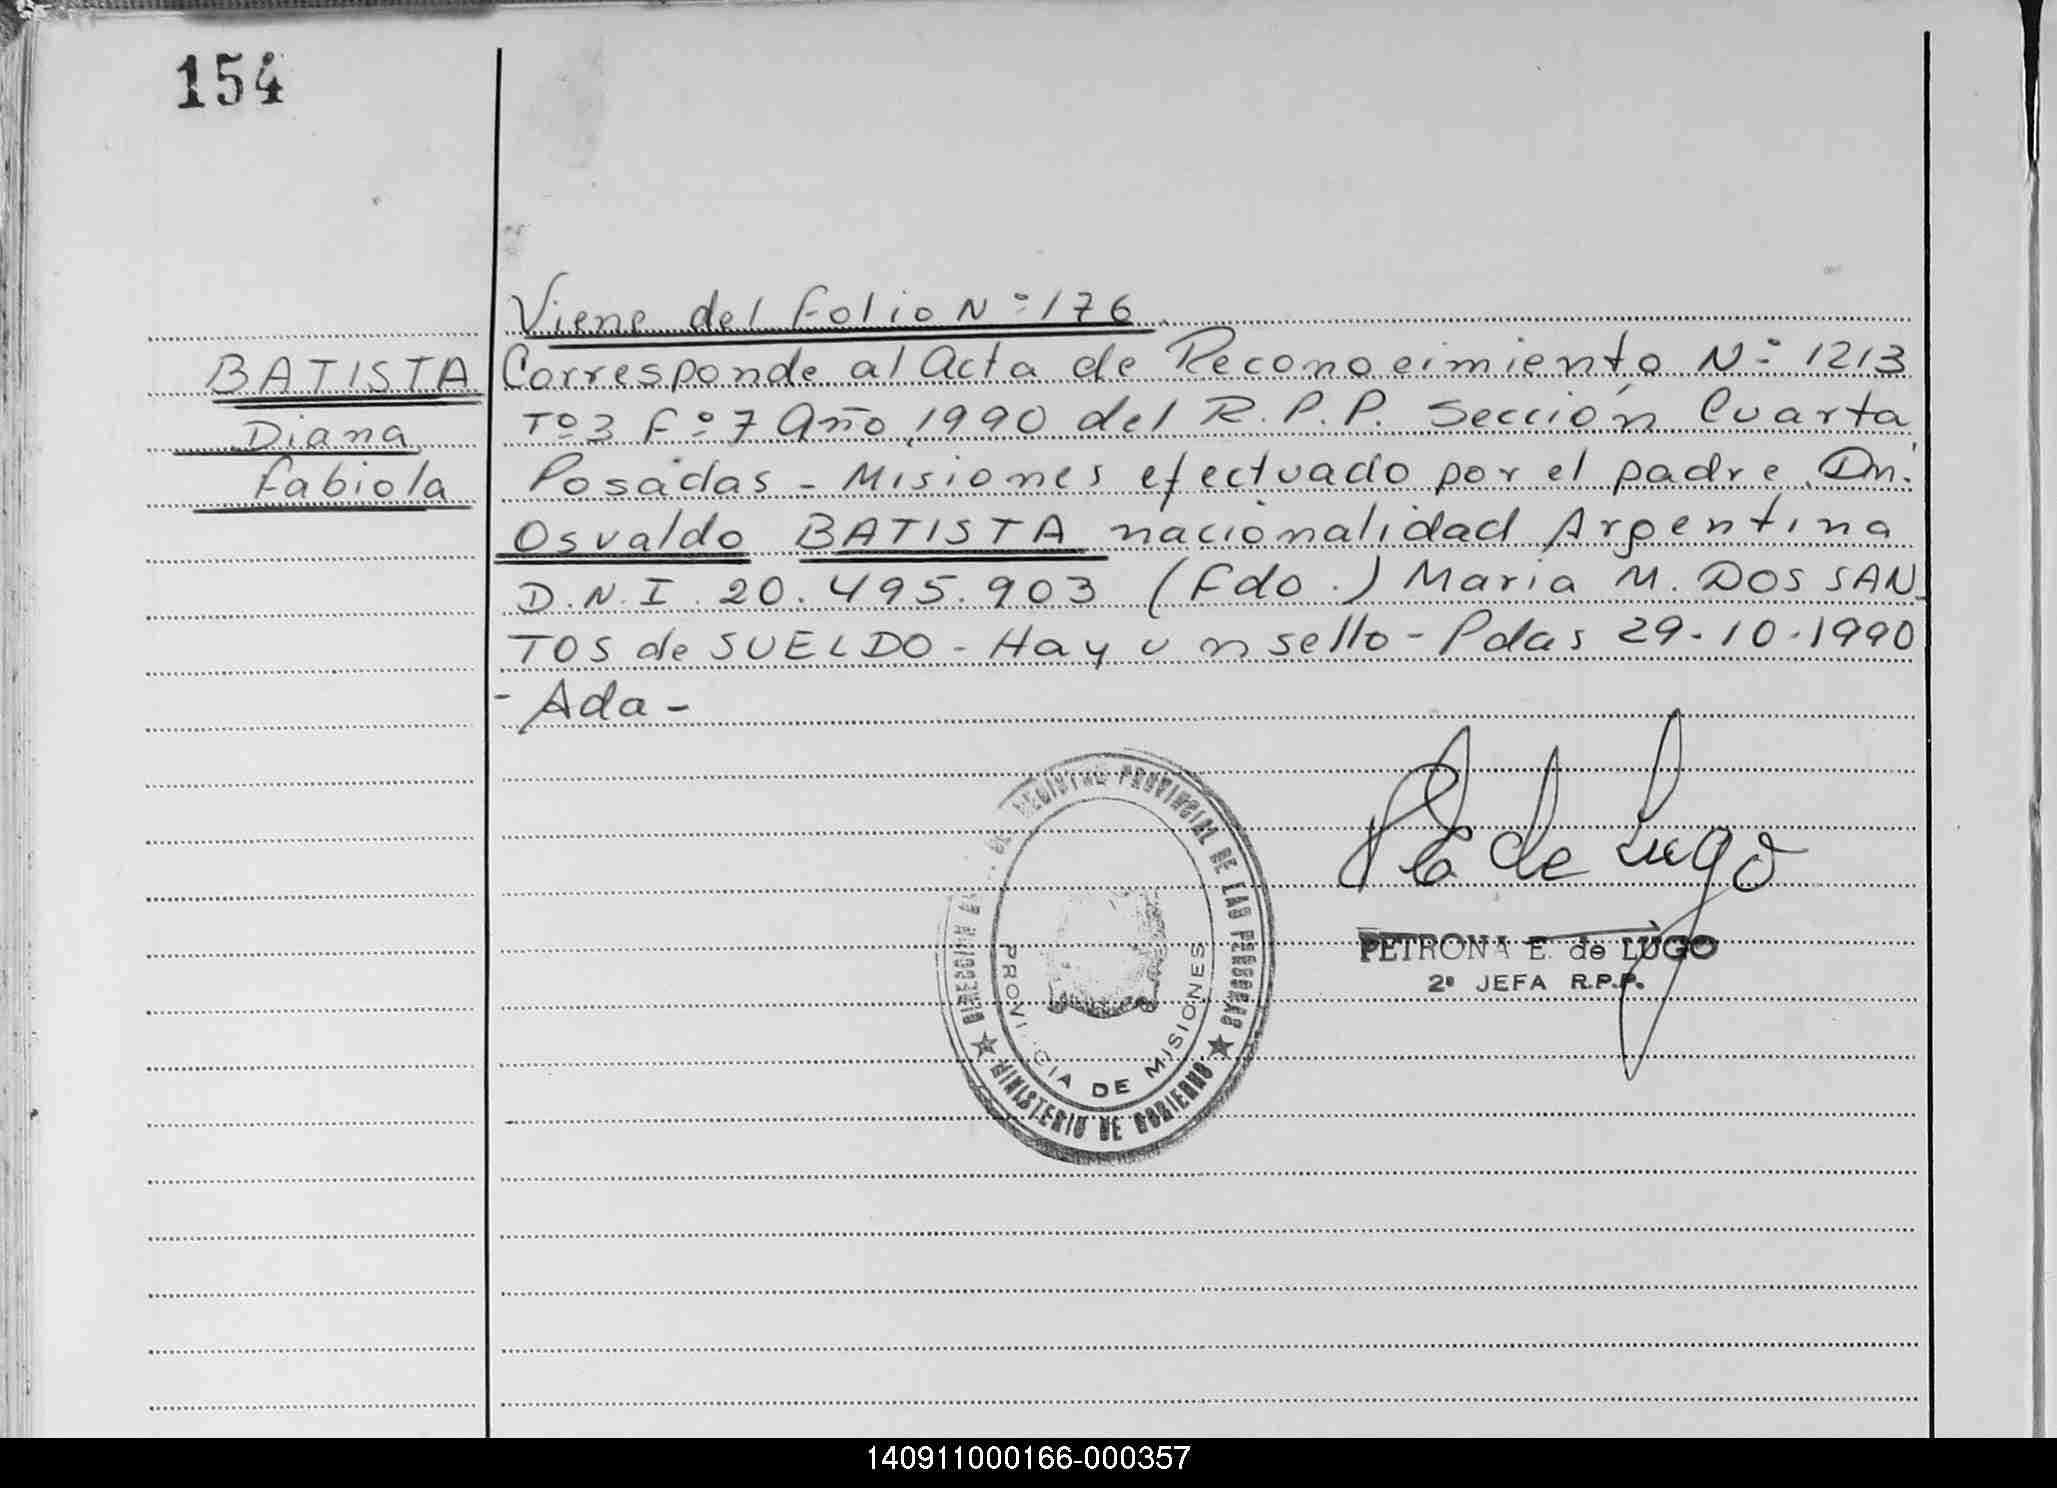 154
Viene del folio Nº 176
BATISTA
Diana
Fabiola
Corresponde al Acta de Reconocimiento Nº 1213
Tº 3 Fº 7 Año 1990 del R.P.P. Sección Cuarta
Posadas - Misiones efectuado por el padre Dn.
Osvaldo BATISTA nacionalidad Argentina
D.N.I. 20.495.903 (Fdo.) Maria M. DOS SAN-
TOS de SUELDO - Hay un sello - Pdas 29-10-1990
- Ada -
DE REGISTRO PROVINCIAL DE LAS PERSONAS
PROVINCIA DE MISIONES
MINISTERIO DE GOBIERNO
de Lugo
PETRONA E. de LUGO
2ª JEFA R.P.P.
140911000166-000357